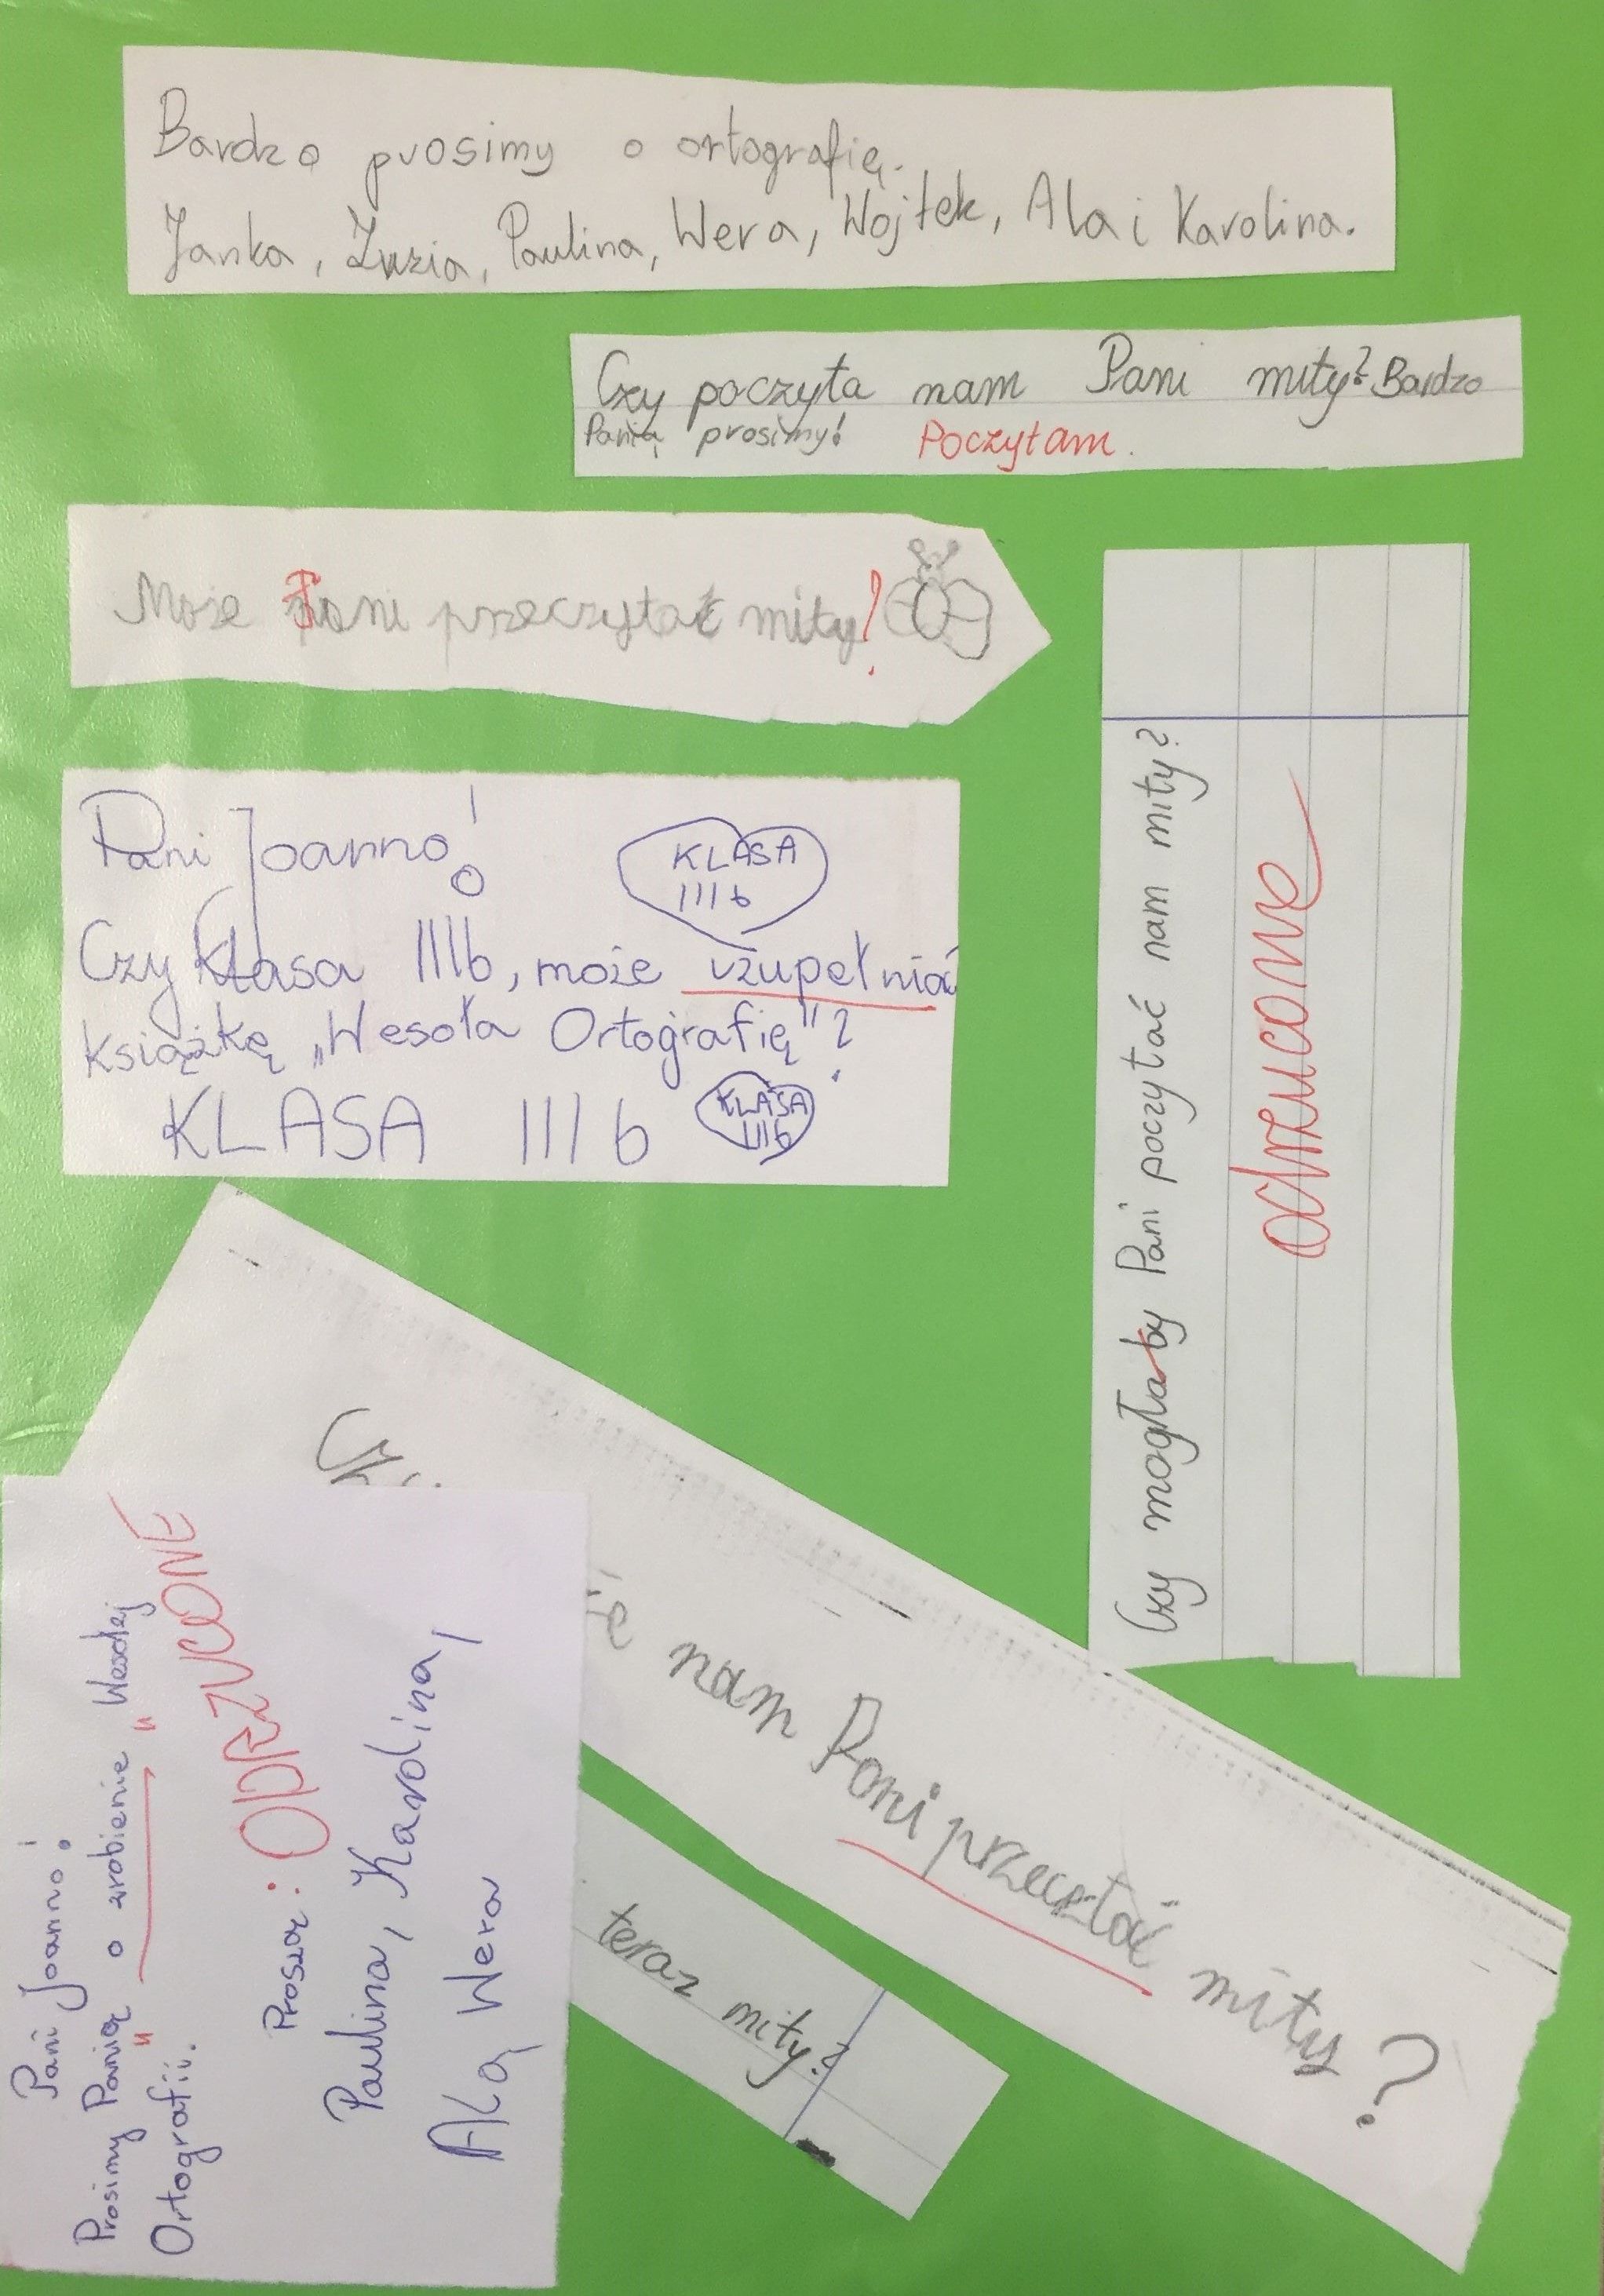 Bardzo prosimy o ortografię.
Janka, Zuzia, Paulina, Wera, Wojtek, Ala i Karolina.
Czy poczyta nam Pani mity? Bardzo
Panią prosimy!
Poczytam.
Może Pani przeczytać mity?
Pani Joanno!
KLASA
IIIb
Czy Klasa IIIb, może uzupełniać
książkę „Wesoła Ortografię"?
KLASA IIIb
KLASA
IIIb
Czy mogłaby Pani poczytać nam mity?
odrzucone
nam Pani przecztać mity?
teraz mity?
Pani Joanno!
Prosimy Panią o zrobienie „Wesołej
Ortografii.
ODRZUCONE
Proszą:
Paulina, Karolina,
Ala, Wera